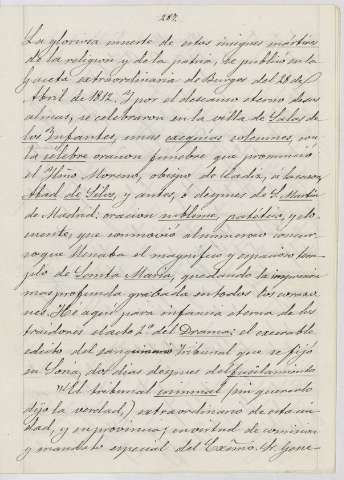 287.
La gloriosa muerte de estos insignes mártires
de la religion y de la patria, se publicó en la
Gaceta extraordinaria de Burgos del 28 de
Abril de 1812. Y por el descanso eterno de sus
almas, se celebraron en la villa de Salas de
los Infantes, unas exequias solemnes, con
la célebre oracion fúnebre que pronunció
el Ilmo Moreno, obispo de Cadiz, á la sazon
Abad de Silos, y antes, ó despues de S. Martin
de Madrid; oracion sublime, patética, y elo-
cuente, que conmovió al numeroso concur-
so que llenaba el magnífico y espacioso tem-
plo de Santa Maria, quedando la impresion
mas profunda grabada en todos los corazo-
nes. Hé aquí para infamia eterna de los
traidores el acto 2º del Drama; el execrable
edicto del sanguinario tribunal que se fijó
en Soria, dos dias despues del fusilamiento
"El tribunal criminal (sin quererlo
dijo la verdad,) extraordinario de esta ciu-
dad, y su provincia; en virtud de comision
y mandato especial del Excmo. Sr. Gene-